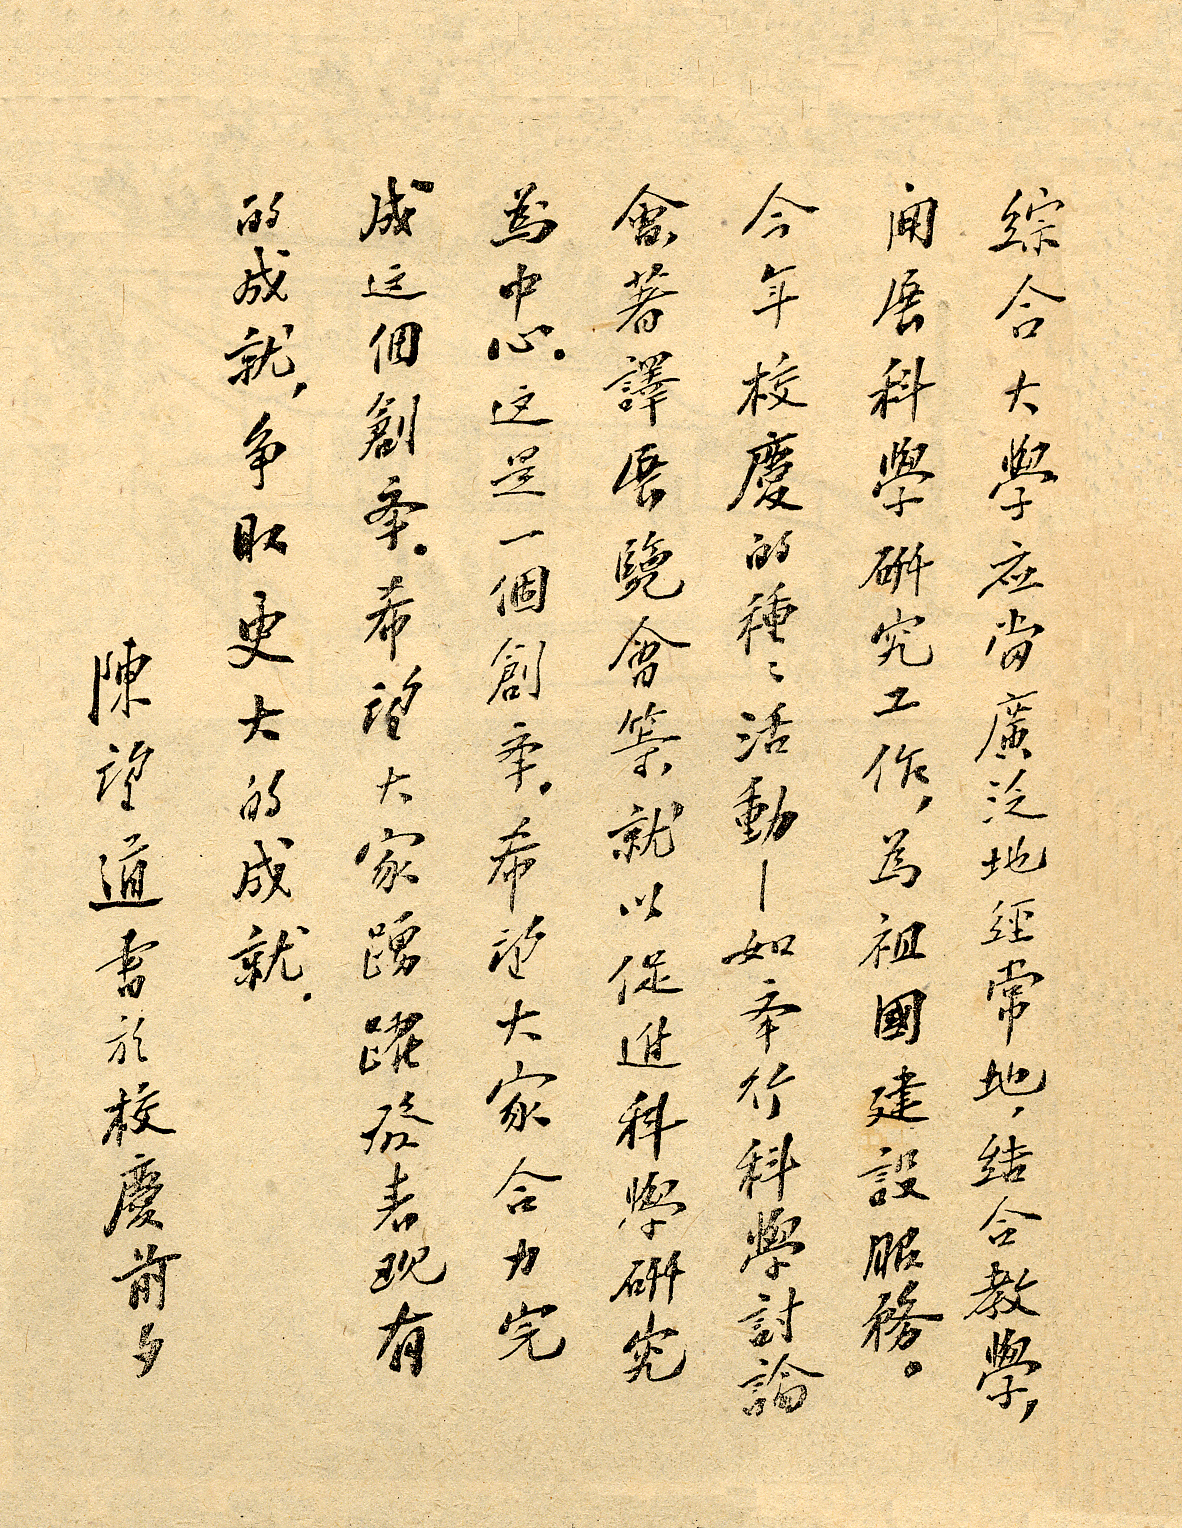 綜合大學应当廣泛地經常地，結合教學，
開展科學研究工作，為祖國建設服務。
今年校慶的種〻活動—如举行科學討論
會、著譯展覽會等，就以促進科學研究
為中心。这是一個創举。希望大家合力完
成这個創举。希望大家踴躍發表现有
的成就，争取更大的成就。
陳望道書於校慶前夕